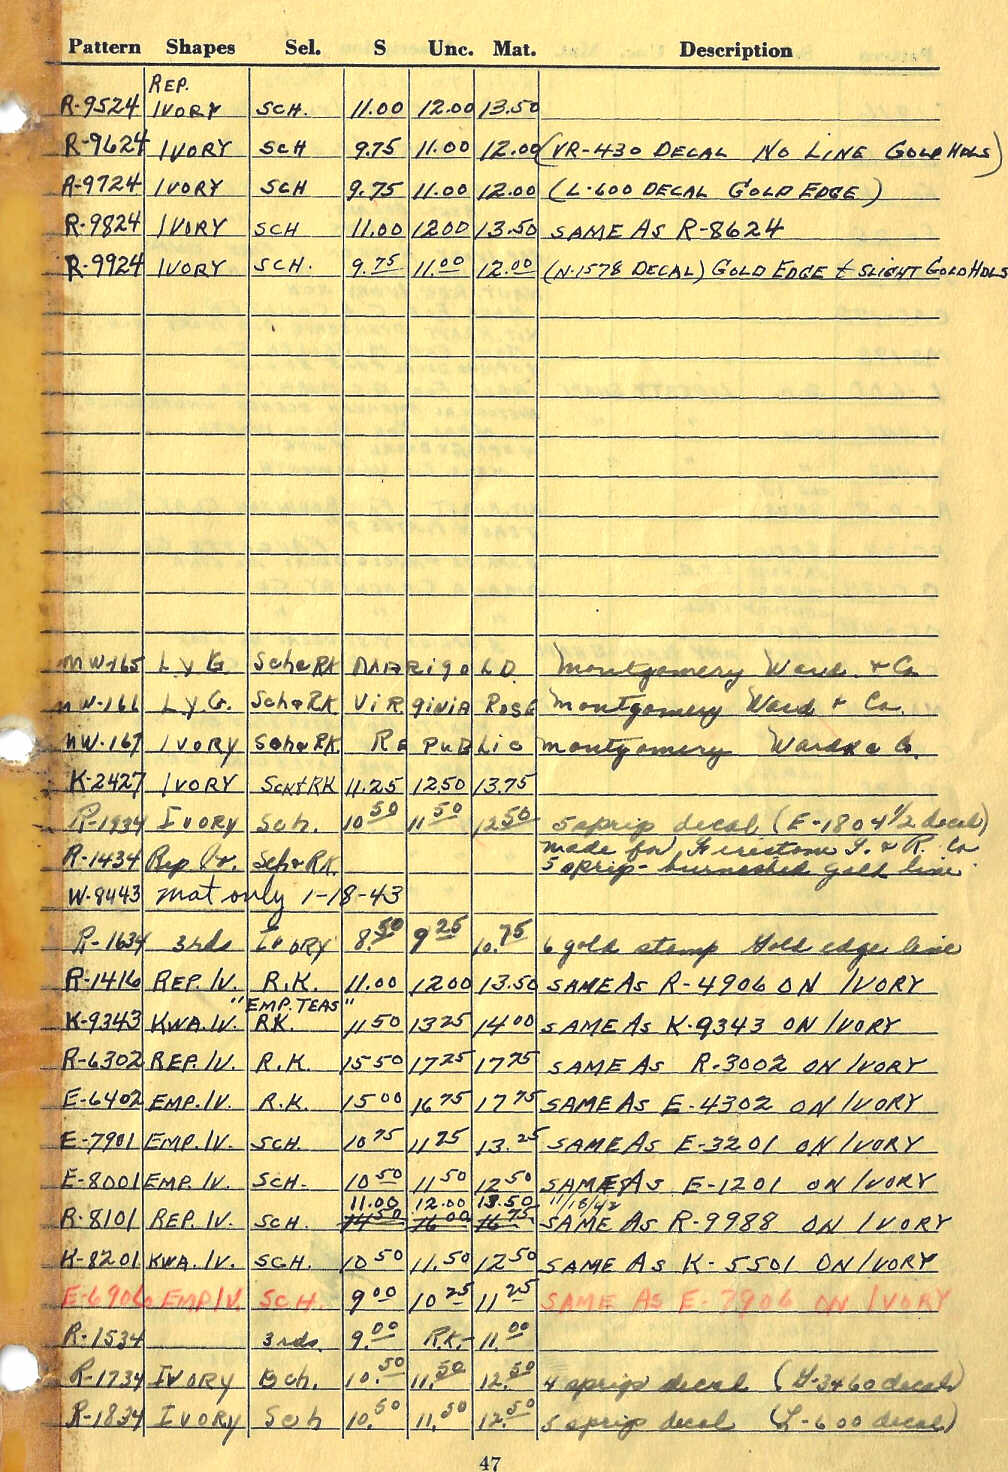 Pattern Shapes Sel. S Unc. Mat. Description
REP.
R-9524 IVORY SCH. 11.00 12.00 13.50
R-9624 IVORY SCH 9.75 11.00 12.00 (VR-430 DECAL NO LINE GOLD HDLS)
R-9724 IVORY SCH 9.75 11.00 12.00 (L-600 DECAL GOLD EDGE)
R-9824 IVORY SCH 11.00 1200 13.50 SAME AS R-8624
R-9924 IVORY SCH. 9.75 11.00 12.00 (N-1578 DECAL) GOLD EDGE & SLIGHT GOLD HDLS
MW-165 L y G. Sch&RK MARigoLD Montgomery Ward & Co.
MW-166 L y G. Sch&RK ViRginiA RoSE Montgomery Ward & Co.
MW-167 IVORY Sch&RK RePuBLic Montgomery Ward & Co.
K-2427 IVORY Sch&RK 11.25 1250 13.75
R-1934 IVORY Sch. 10 50 11 50 12 50 5 sprip decal (E-1804 1/2 decal)
made for Firestone T. & R. Co
R-1434 Rep Iv. Sch&RK. 5 sprip- burnished gold line
W-9443 mat only 1-18-43
R-1634 3rds IVORY 8.50 9 25 10.75 6 gold stamp Gold edge line
R-1416 REP. IV. R.K. 11.00 1200 13.50 SAME AS R-4906 ON IVORY
"EMP. TEAS"
K-9343 KWA. IV. RK. 11 50 13 25 14 00 SAME AS K-9343 ON IVORY
R-6302 REP. IV. R.K. 15 50 17 25 17 75 SAME AS R-3002 ON IVORY
E-6402 EMP. IV. R.K. 15 00 16 75 17 75 SAME AS E-4302 ON IVORY
E-7901 EMP. IV. SCH. 10 75 11 75 13.25 SAME AS E-3201 ON IVORY
E-8001 EMP. IV. SCH- 10 50 11 50 12 50 SAME AS E-1201 ON IVORY
11.00 12.00 13.50 11/18/42
R-8101 REP. IV. SCH. 14 50 16 00 16 75 SAME AS R-9988 ON IVORY
K-8201 KWA. IV. SCH. 10 50 11.50 12 50 SAME AS K-5501 ON IVORY
E-6906 EMP IV. SCH. 9 00 10 25 11 25 SAME AS E-7906 ON IVORY
R-1534 3rds. 9.00 R.K.- 11.00
R-1734 IVORY Sch. 10.50 11.50 12.50 4 sprip decal (G-3460 decal)
R-1834 IVORY Sch 10.50 11.50 12.50 5 sprip decal (L-600 decal)
47